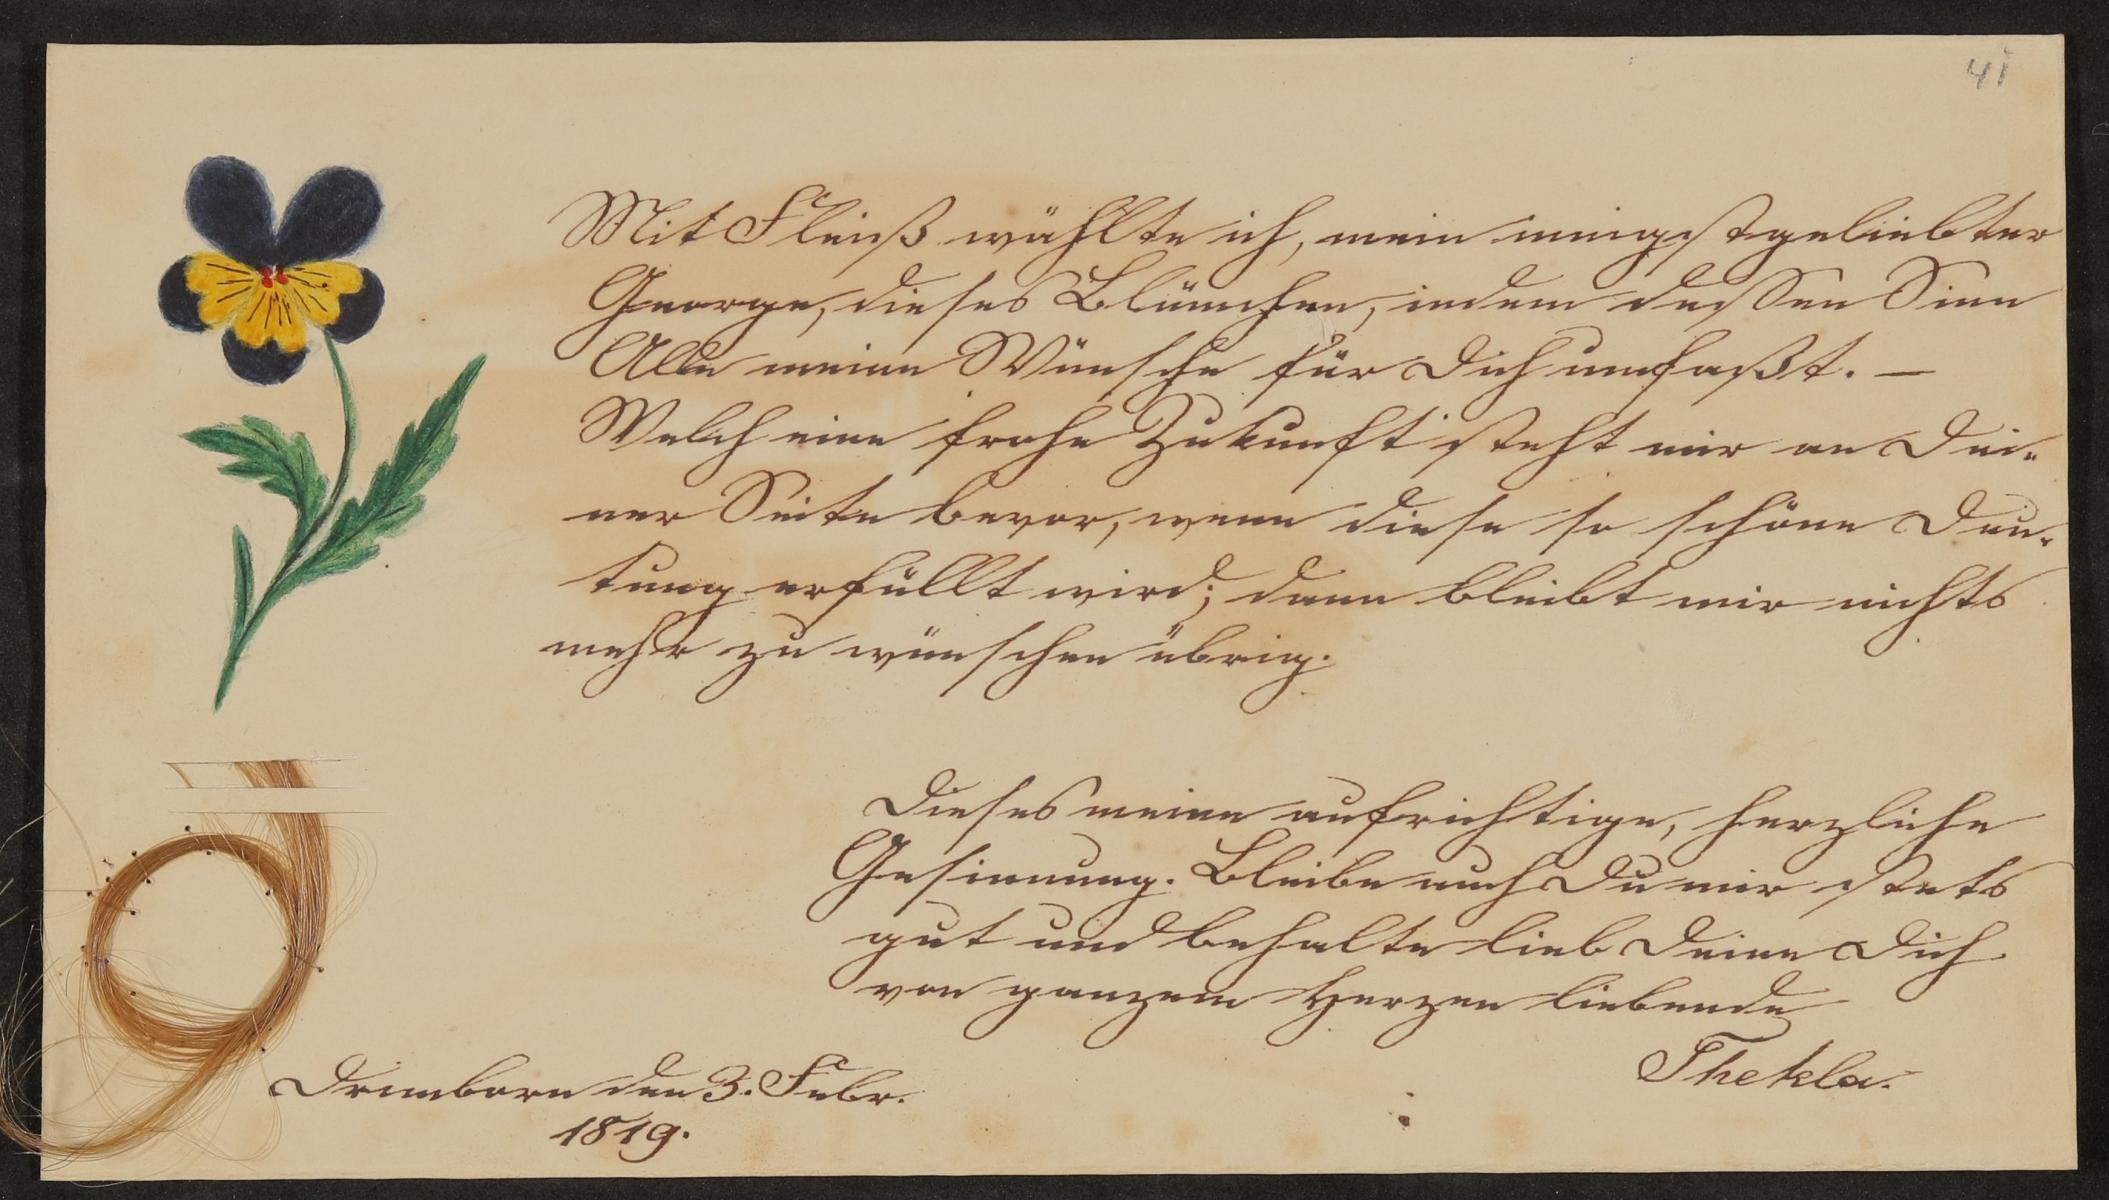 41
Mit Fleiß wählte ich, mein innigstgeliebter
George, dieses Blümchen, indem dessen Sinn
Alle meine Wünsche für Dich umfaßt. —
Welch eine frohe Zukunft steht mir an Dei-
ner Seite bevor, wenn diese so schöne Deu-
tung erfüllt wird; dann bleibt mir nichts
mehr zu wünschen übrig.
Dieses meine aufrichtige, herzliche
Gesinnung. Bleibe auch Du mir stets
gut und behalte lieb Deine Dich
von ganzem Herzen liebende
Thekla.
Drimborn den 3. Febr.
1819.